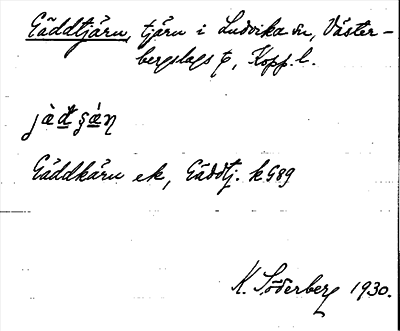 Gäddtjärn, tjärn i Ludvika sn, Väster-
bergslags tg, Kopp. l.
Gäddkärn ek, Gäddtj. k G89
K. Söderberg 1930.